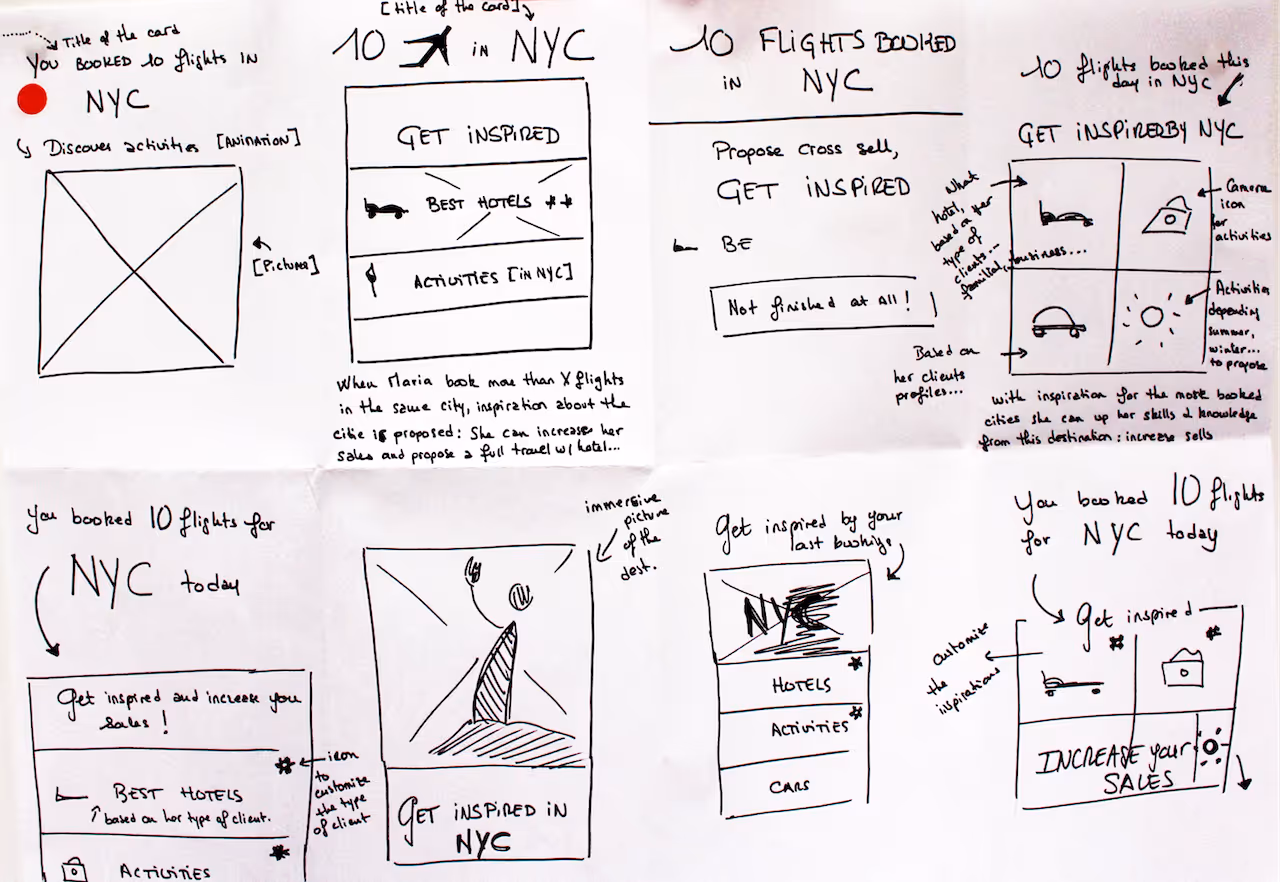 Title of the card
You BOOKED 10 flights IN
NYC
Discover activities [ANIMATION]
[Pictures]
[title of the card]
10 in NYC
GET INSPIRED
BEST HOTELS **
ACTIVITIES [IN NYC]
When Maria book more than X flights
in the same city, inspiration about the
citie is proposed: She can increase her
sales and propose a full travel w/ hotel...
10 FLIGHTS BOOKED
IN NYC
Propose cross sell,
GET INSPIRED
BE
Not finished at all!
10 flights booked this
day in NYC
GET INSPIRED BY NYC
What
hotel,
based on her
type of
clients...
familial, business...
Camera
icon
for
activities
Activities
depending
summer,
winter...
to propose
Based on
her clients
profiles...
with inspiration for the most booked
cities she can up her skills & knowledge
from this destination: increase sells
You booked 10 flights for
NYC today
Get inspired and increase you
sales!
BEST HOTELS
based on her type of client.
icon
to
customize
the type
of client
ACTIVITIES
immersive
picture
of the
dest.
GET INSPIRED IN
NYC
Get inspired by your
last bookings
NYC
HOTELS
ACTIVITIES
CARS
You booked 10 flights
for NYC today
Get inspired
customize
the
inspirations
INCREASE your
SALES